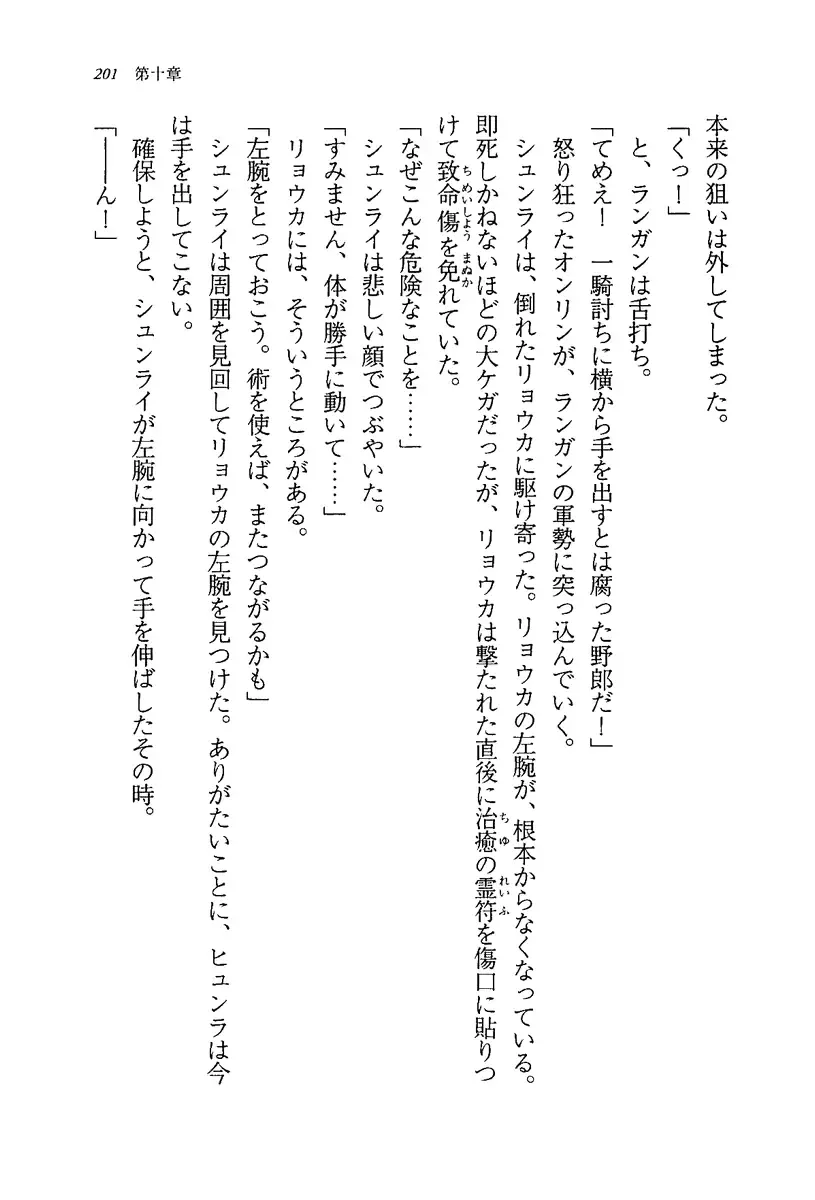 201 第十章
本来の狙いは外してしまった。
「くっ！」
と、ランガンは舌打ち。
「てめえ！　一騎討ちに横から手を出すとは腐った野郎だ！」
怒り狂ったオンリンが、ランガンの軍勢に突っ込んでいく。
シュンライは、倒れたリョウカに駆け寄った。リョウカの左腕が、根本からなくなっている。
即死しかねないほどの大ケガだったが、リョウカは撃たれた直後に治癒の霊符を傷口に貼りつ
けて致命傷を免れていた。
「なぜこんな危険なことを……」
シュンライは悲しい顔でつぶやいた。
「すみません、体が勝手に動いて……」
リョウカには、そういうところがある。
「左腕をとっておこう。術を使えば、またつながるかも」
シュンライは周囲を見回してリョウカの左腕を見つけた。ありがたいことに、ヒュンラは今
は手を出してこない。
確保しようと、シュンライが左腕に向かって手を伸ばしたその時。
「――ん！」